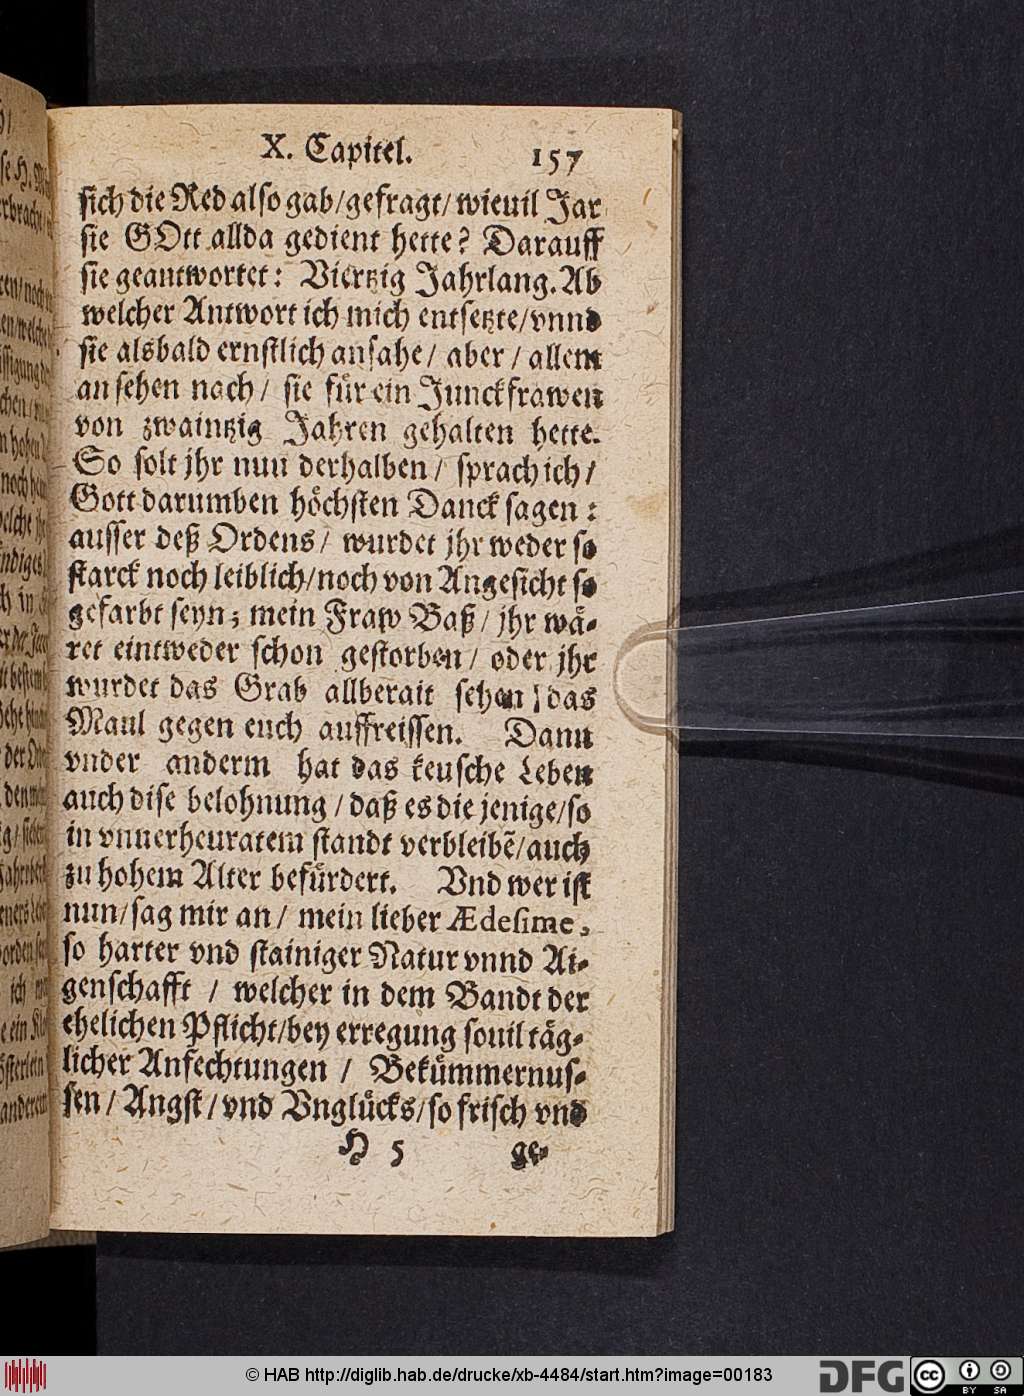 X. Capitel. 157
sich die Red also gab/gefragt/ wieuil Jar
sie GOtt allda gedient hette? Darauff
sie geantwortet: Viertzig Jahrlang. Ab
welcher Antwort ich mich entsetzte/vnnd
sie alsbald ernstlich ansahe/ aber/ allem
ansehen nach/ sie für ein Junckfrawen
von zwaintzig Jahren gehalten hette.
So solt jhr nun derhalben/ sprach ich/
Gott darumben höchsten Danck sagen:
ausser deß Ordens/ wurdet jhr weder so
starck noch leiblich/noch von Angesicht so
gefarbt seyn; mein Fraw Baß/ jhr wä-
ret eintweder schon gestorben/ oder jhr
wurdet das Grab allberait sehen/ das
Maul gegen euch auffreissen. Dann
vnder anderm hat das keusche Leben
auch dise belohnung/daß es die jenige/so
in vnuerheuratem standt verbleibẽ/auch
zu hohem Alter befürdert. Vnd wer ist
nun/sag mir an/ mein lieber Ædesime,
so harter vnd stainiger Natur vnnd Ai-
genschafft / welcher in dem Bandt der
ehelichen Pflicht/bey erregung souil täg-
licher Anfechtungen / Bekümmernus-
sen/Angst/vnd Vnglücks/so frisch vnd
H 5 ge-
© HAB http://diglib.hab.de/drucke/xb-4484/start.htm?image=00183
DFG
cc
BY SA